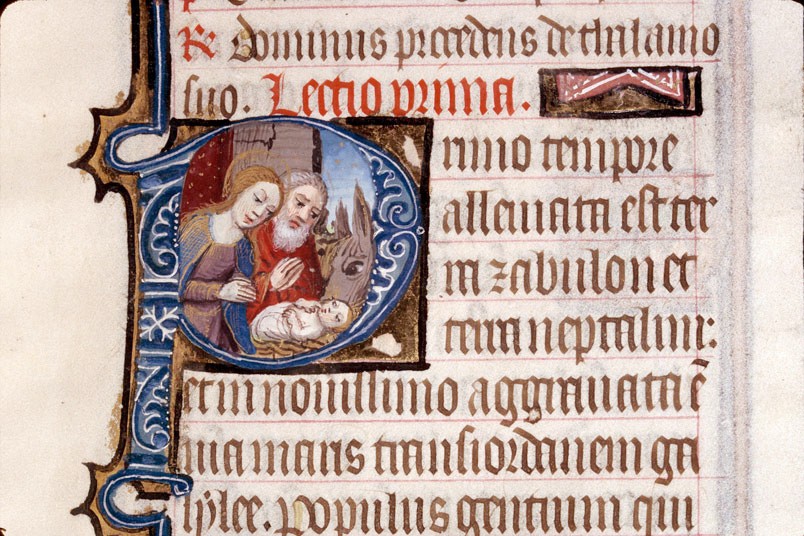 ℟ dominus procedens de thalamo
suo. Lectio prima.
Primo tempore
alleuiata est ter
ra zabulon et
terra neptalim:
et in nouissimo aggrauata ē
uia maris transiordanem ga
lylee. populus gentium qui